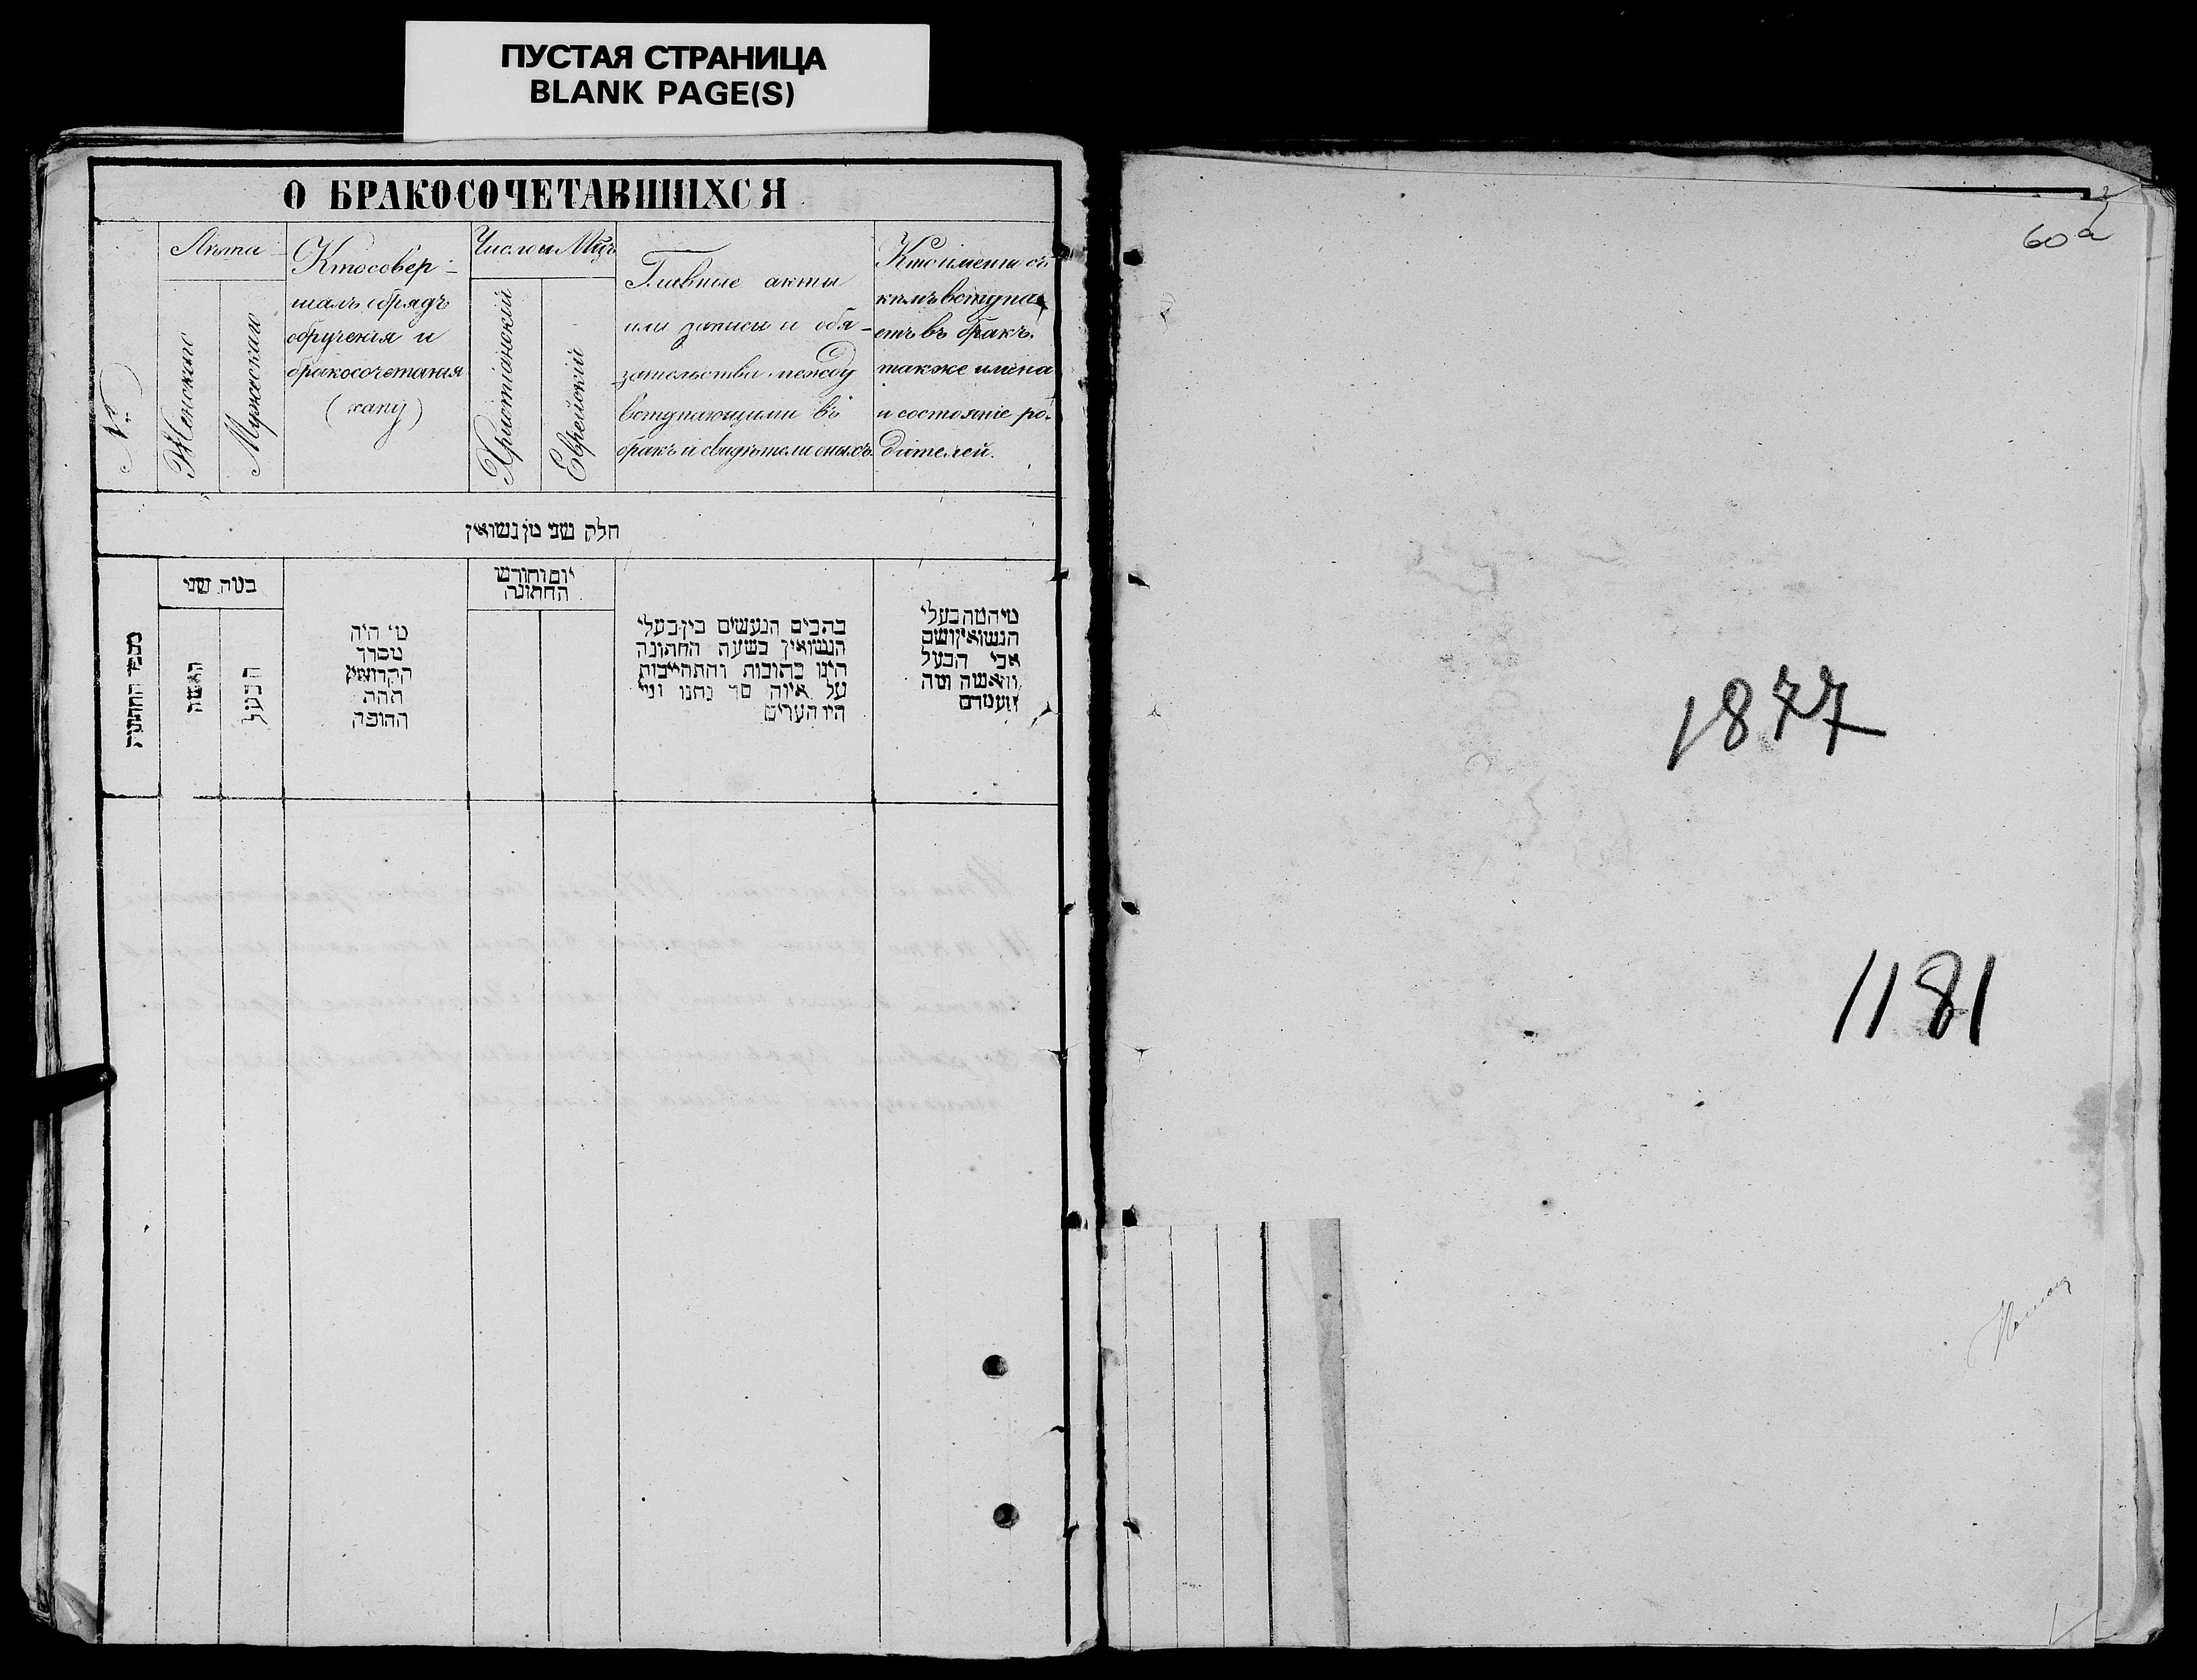 ПУСТАЯ СТРАНИЦА
BLANK PAGE(S)
О БРАКОСОЧЕТАВШИХСЯ
№
Лѣта
Женскаго
Мужескаго
Кто совер-
шалъ обрядъ
обрученія и
бракосочетанія
(хапу)
Число и Мцъ
Христіанскій
Еврейскій
Главные акты
или записи и обя-
зательства между
вступающими въ
бракъ и свидѣтели оныхъ.
Кто именно съ
кѣмъ вступа-
етъ въ бракъ.
также имена
и состояніе ро-
дителей.
חלק שני מן נשואין
מספר החתונות
כמה שני
האשה
הבעל
מי היה
מסדר
הקדושין
תחת
החופה
יום וחודש
החתונה
כתבים הנעשים בין בעלי
הנשואין בשעת החתונה
היינו כתובות והתחייבות
על איזה סך נתנו ומי
היו העדים
מיהמה בעלי
הנשואין ושם
אבי הבעל
והאשה ומה
מעמדם
60
1877
1181